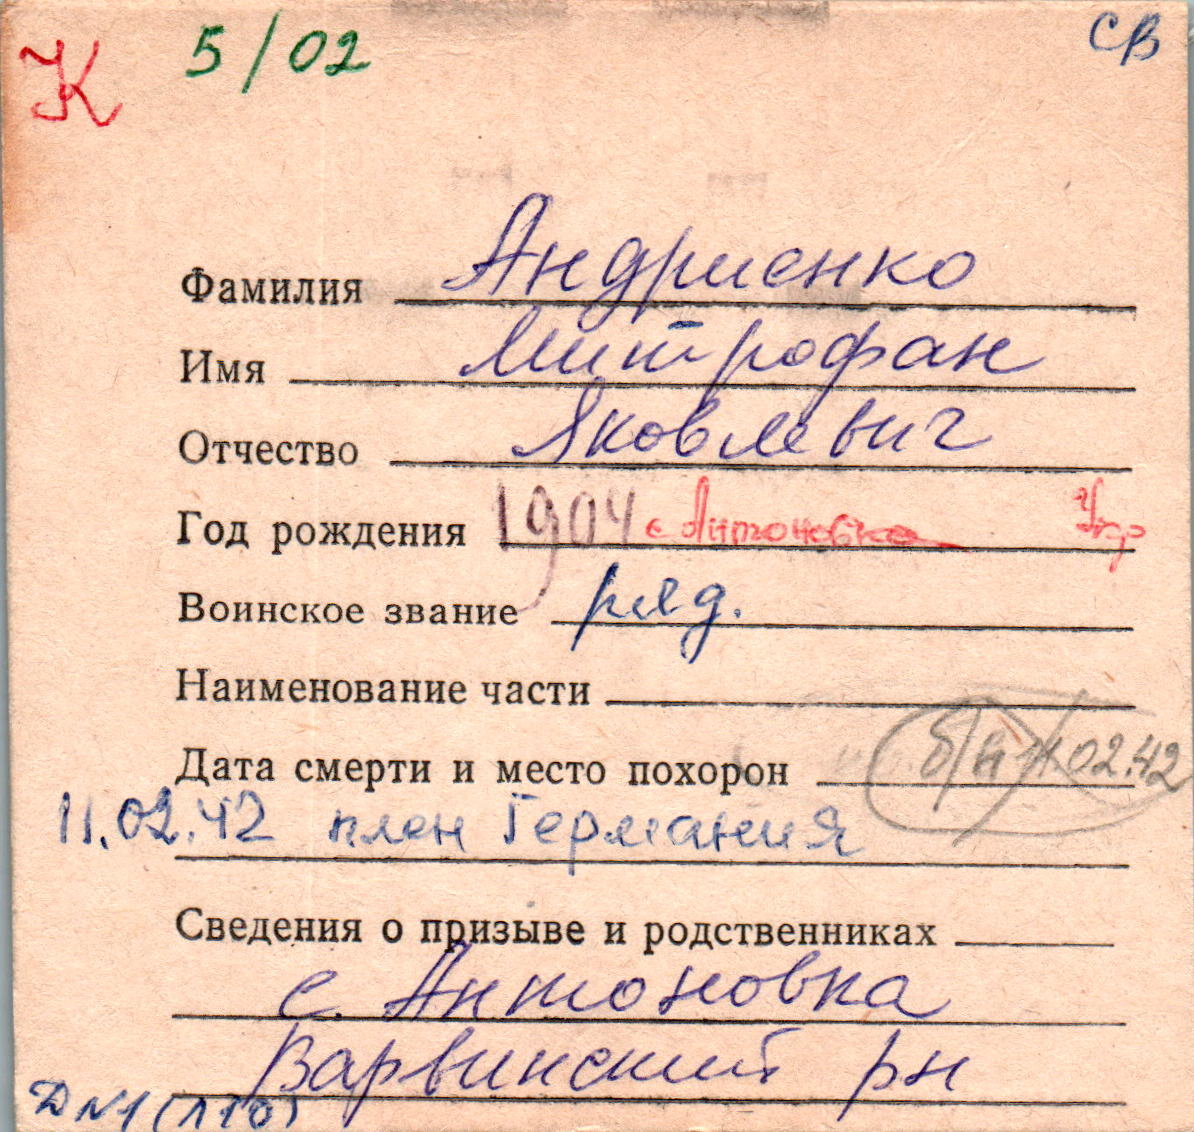 К 5/02 СВ
Фамилия Андриенко
Имя Митрофан
Отчество Яковлевич
Год рождения 1904 с Антоновка Укр
Воинское звание ряд.
Наименование части
Дата смерти и место похорон б/н 11.02.42
11.02.42 плен Германия
Сведения о призыве и родственниках
с. Антоновка
Варвинский рн
Д№1(л10)